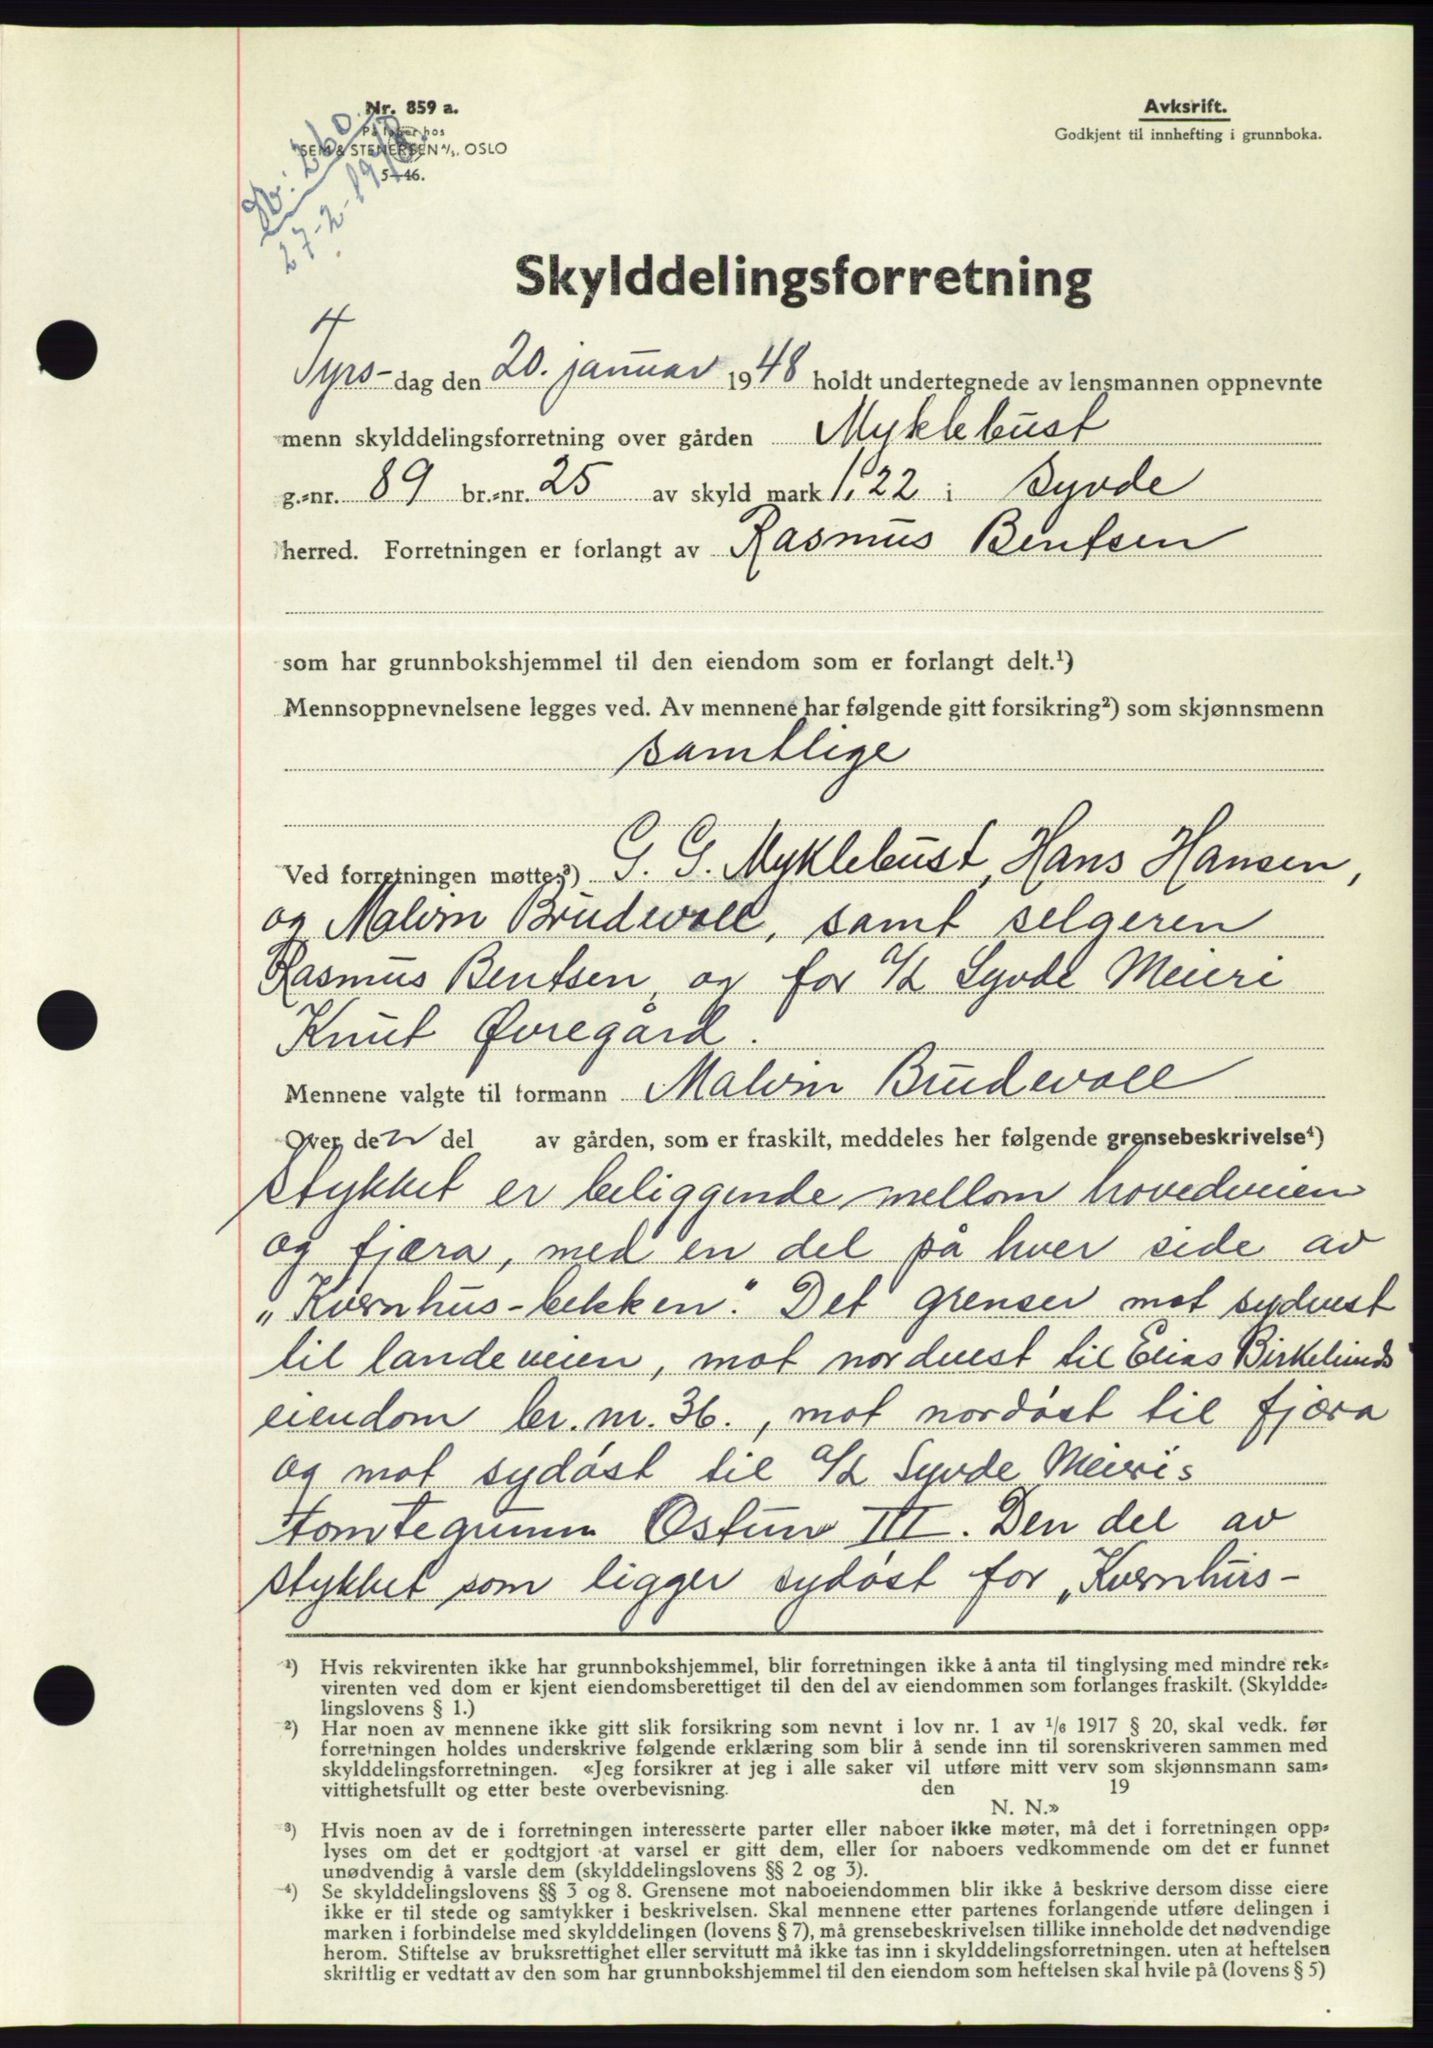 Nr. 859 a.
På lager hos
SEM & STENERSEN A/S, OSLO
5-46.
Nr: 260.
27-2-1948.
Avksrift.
Godkjent til innhefting i grunnboka.
Skylddelingsforretning
Tyrs-dag den 20. januar 1948 holdt undertegnede av lensmannen oppnevnte
menn skylddelingsforretning over gården Myklebust
g.-nr. 89 br.-nr. 25 av skyld mark 1,22 i Syvde
herred. Forretningen er forlangt av Rasmus Bentsen
som har grunnbokshjemmel til den eiendom som er forlangt delt.¹)
Mennsoppnevnelsene legges ved. Av mennene har følgende gitt forsikring²) som skjønnsmenn
samtlige
Ved forretningen møtte:³) G. G. Myklebust, Hans Hansen,
og Malvin Brudevoll, samt selgeren
Rasmus Bentsen, og for A/L Syvde Meieri
Knut Øvregård.
Mennene valgte til formann Malvin Brudevoll
Over den del av gården, som er fraskilt, meddeles her følgende grensebeskrivelse⁴)
Stykket er beliggende mellom hovedveien
og fjæra, med en del på hver side av
„Kvernhus-bekken." Det grenser mot sydvest
til landeveien, mot nordvest til Elias Birkelunds
eiendom br. nr. 36., mot nordøst til fjæra
og mot sydøst til A/L Syvde Meieris
tomtegrunn Østun III. Den del av
stykket som ligger sydøst for „Kvernhus-
¹) Hvis rekvirenten ikke har grunnbokshjemmel, blir forretningen ikke å anta til tinglysing med mindre rek-
virenten ved dom er kjent eiendomsberettiget til den del av eiendommen som forlanges fraskilt. (Skyldde-
lingslovens § 1.)
²) Har noen av mennene ikke gitt slik forsikring som nevnt i lov nr. 1 av 1/6 1917 § 20, skal vedk. før
forretningen holdes underskrive følgende erklæring som blir å sende inn til sorenskriveren sammen med
skylddelingsforretningen. «Jeg forsikrer at jeg i alle saker vil utføre mitt verv som skjønnsmann sam-
vittighetsfullt og etter beste overbevisning. den 19
N. N.»
³) Hvis noen av de i forretningen interesserte parter eller naboer ikke møter, må det i forretningen opp-
lyses om det er godtgjort at varsel er gitt dem, eller for naboers vedkommende om det er funnet
unødvendig å varsle dem (skylddelingslovens §§ 2 og 3).
⁴) Se skylddelingslovens §§ 3 og 8. Grensene mot naboeiendommen blir ikke å beskrive dersom disse eiere
ikke er til stede og samtykker i beskrivelsen. Skal mennene etter partenes forlangende utføre delingen i
marken i forbindelse med skylddelingen (lovens § 7), må grensebeskrivelsen tillike inneholde det nødvendige
herom. Stiftelse av bruksrettighet eller servitutt må ikke tas inn i skylddelingsforretningen. uten at heftelsen
skriftlig er vedtatt av den som har grunnbokshjemmel til den eiendom som heftelsen skal hvile på (lovens § 5)